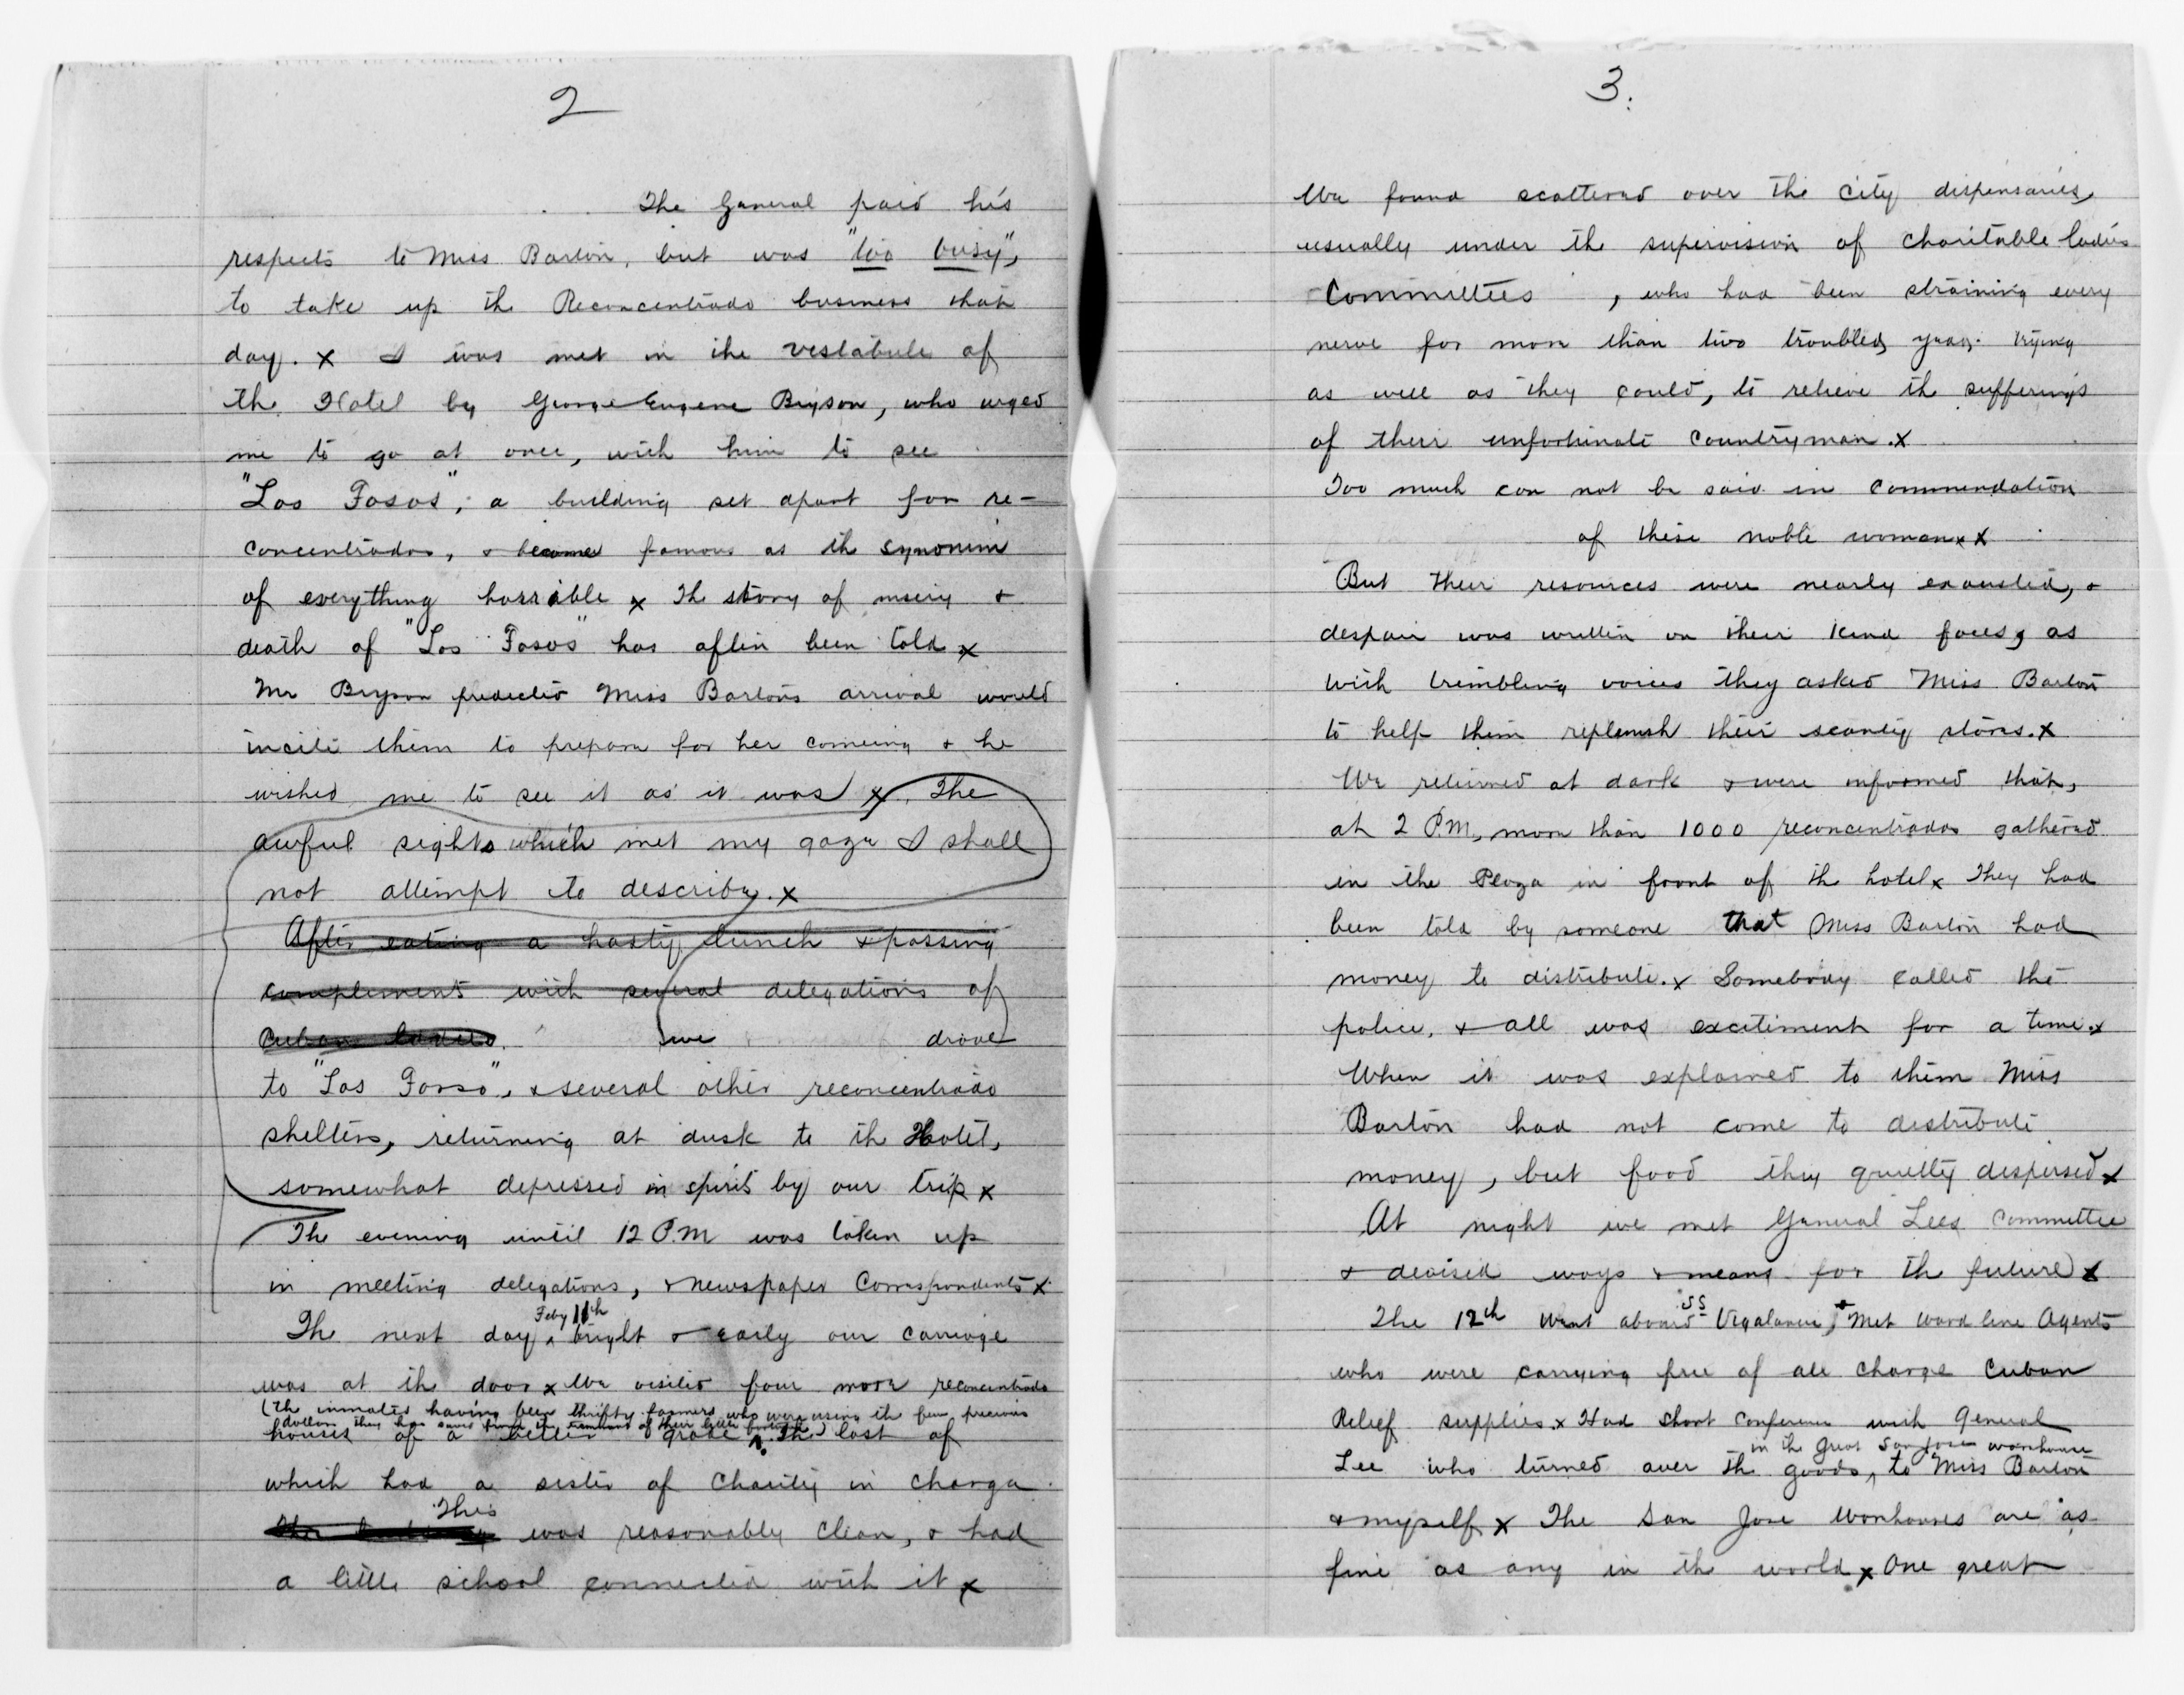 2
The General paid his
respects to Miss Barton, but was "too busy",
to take up the Reconcentrado business that
day. x I was met in the vestabule of
the Hotel by George Eugene Bryson, who urged
me to go at once, with him to see
"Los Fosos", a building set apart for re-
concentrados, & become famous as the synonim
of everything horrible x The story of misery &
death of "Los Fosos" has often been told x
Mr Bryson predicted Miss Bartons arrival would
incite them to prepare for her comeing & he
wished me to see it as it was x The
awful sights which met my gaze I shall
not attempt to describe. x
After eating a hasty lunch & passing
complements with several delegations of
Cuban ladies. we drove
to "Los Fosso", & several other reconcentrado
shelters, returning at dusk to the Hotel,
somewhat depressed in spirit by our trip x
The evening until 12 P.M was taken up
in meeting delegations, & newspaper Correspondents x
Feby 11th
The next day, bright & early our carriage
was at the door x We visited four more reconcentrado
(the inmates having been thrifty farmers who were using the few precious
dollars they had saved from the of their little fortune)
houses of a better grade. The last of
which had a sister of Charity in charge.
This
was reasonably clean, & had
a little school connected with it x
3.
We found scattered over the city dispensaries,
usually under the supervision of charitable ladies
Committees , who had been straining every
nerve for more than two troubled years. trying
as well as they could, to relieve the sufferings
of their unfortunate countryman. x
Too much can not be said in commendation
of these noble woman x x
But their resources were nearly exausted, &
despair was written on their kind faces, as
with trimbling voices they asked Miss Barton
to help them replenish their scanty stores. x
We returned at dark & were informed that,
at 2 P.M, more than 1000 reconcentrados gathered
in the Plaza in front of the hotel x They had
been told by someone that Miss Barton had
money to distribute. x Somebody called the
police, & all was excitiment for a time. x
When it was explained to them Miss
Barton had not come to distribute
money, but food they quietly dispersed x
At night we met General Lees Committee
& devised ways & means for the future x
The 12th went aboard SS Vigalancia, & met Ward line Agents
who were carrying free of all charge Cuban
Relief supplies. x Had short conference with General
in the great San Jose warehouse
Lee who turned over the goods, to Miss Barton
& myself x The San Jose Warhouses are as
fine as any in the world x One great